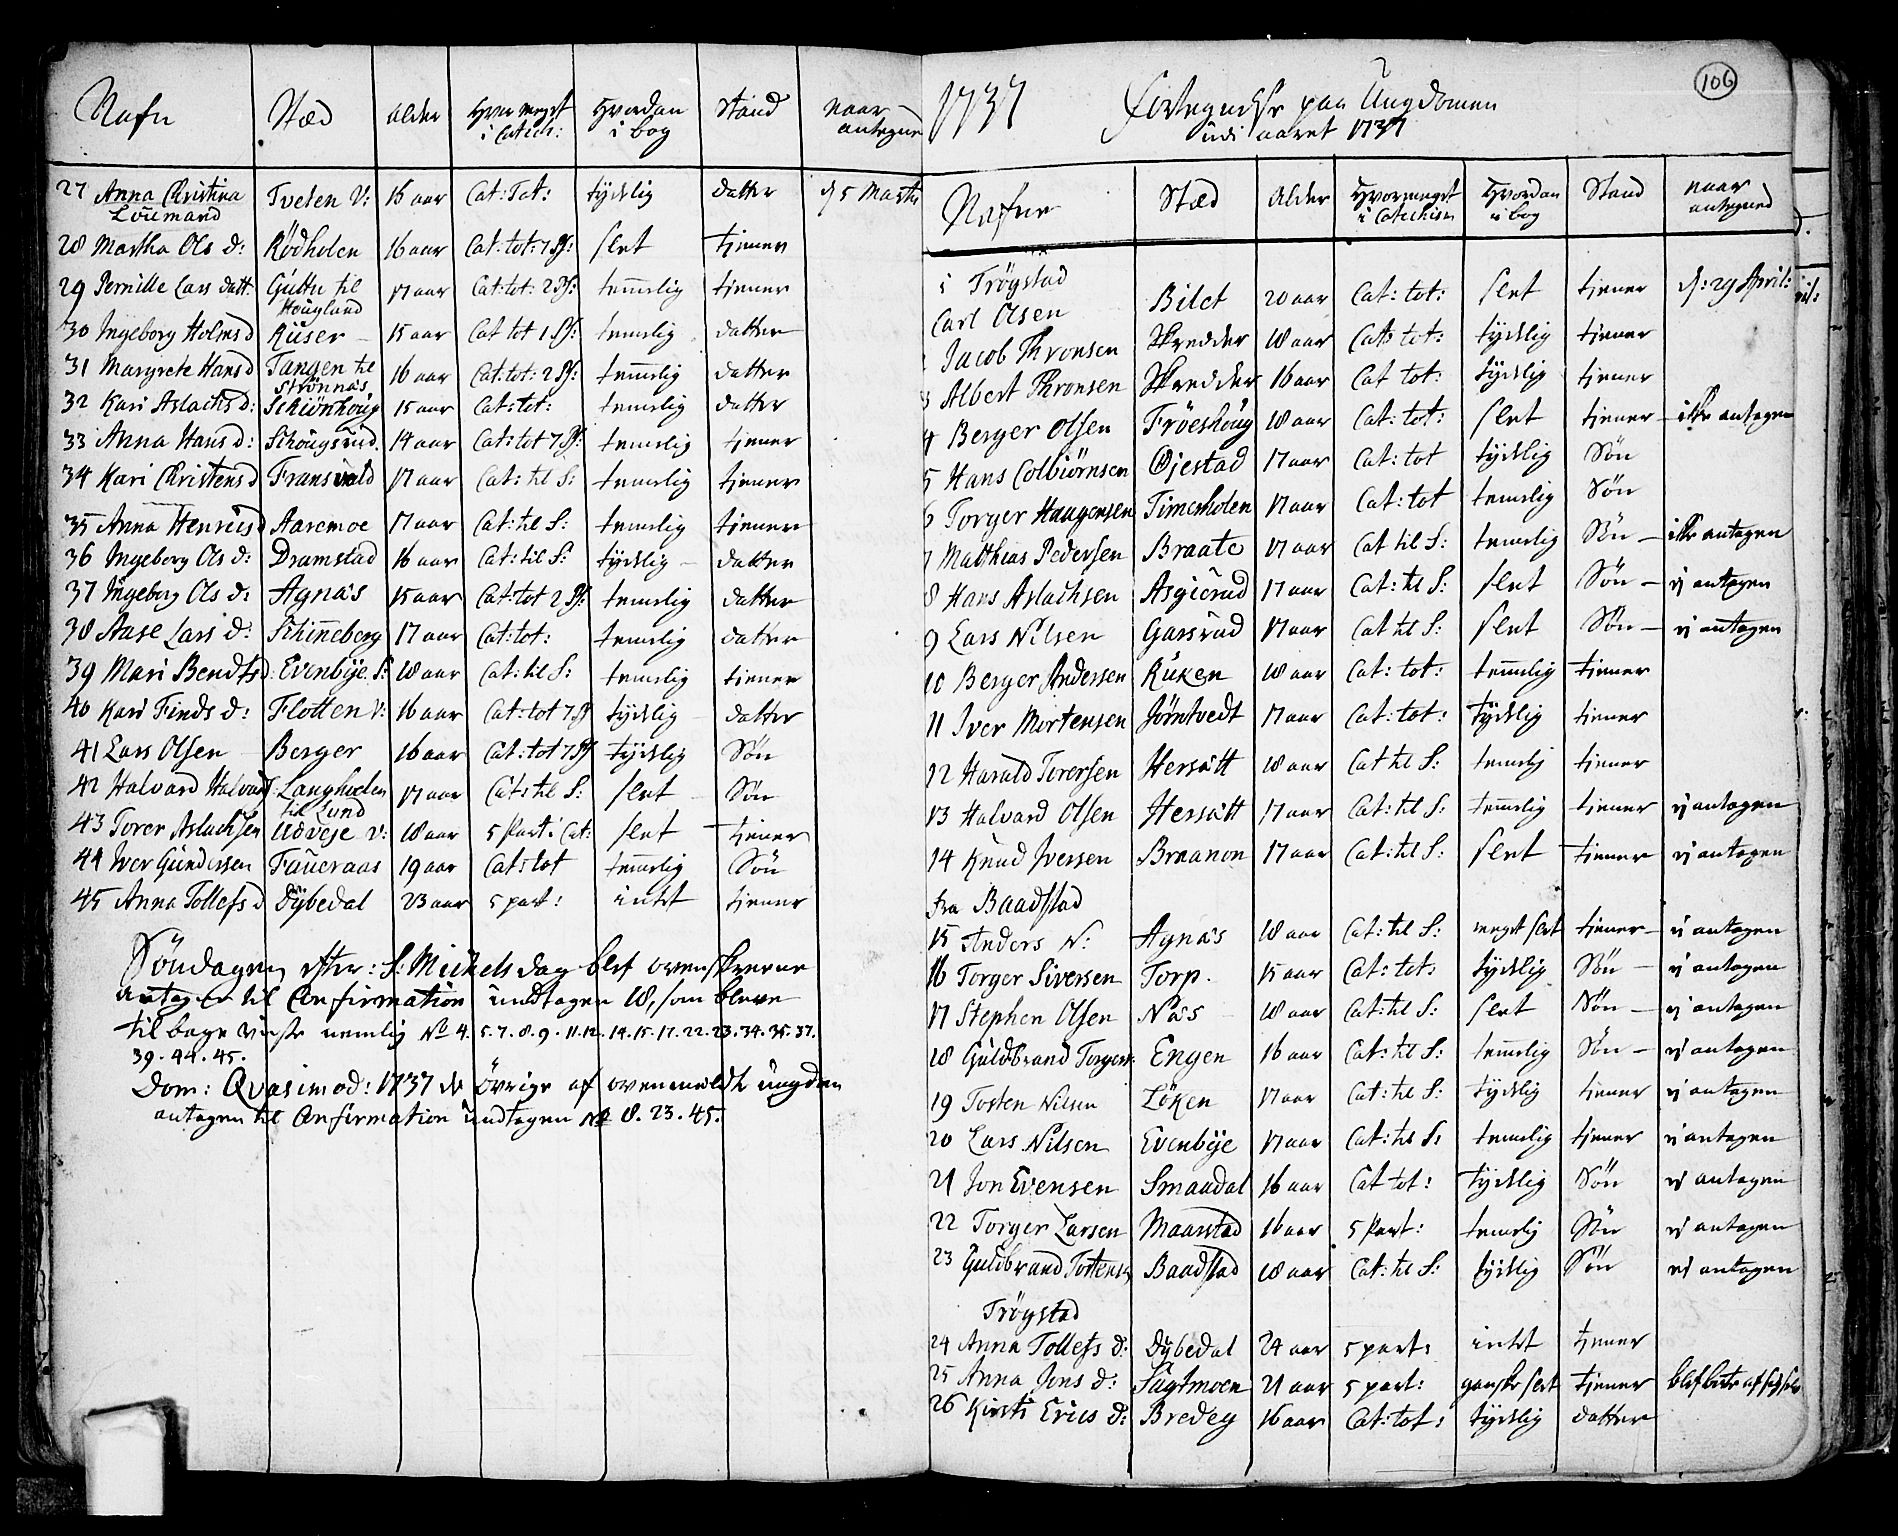 Nafn Stæd Alder Hvor meget i Catech: Hvordan i bog Stand naar antegned
27 Anna Christina Tveten V: 16 aar Cat: Tot: tydelig datter d 5 Martii
Loumand
28 Martha Ols d: Rødholen 16 aar Cat: tot: 7 Ps: slet tiener
29 Pernille Lars datt: Guttu til 17 aar Cat: tot: 2 Ps: temelig tiener
Hougland
30 Ingeborg Holms d Kuser 15 aar Cat tot 1 Ps: temelig datter
31 Margrete Hans d Tangen til 16 aar Cat: tot: 2 Ps: temelig datter
Strønnæs
32 Kari Aslachs d: Schiønhoug 15 aar Cat: tot: temelig datter
33 Anna Hans d: Schougsrud 14 aar Cat: tot 7 Ps: temelig tiener
34 Kari Christens d Fransvold 17 aar Cat: til S: temelig tiener
35 Anna Henrics d Aaremoe 17 aar Cat: til S: temelig tiener
36 Ingeborg Ols d: Dramstad 16 aar Cat: til S: tydelig datter
37 Ingeborg Ols d: Agnæs 15 aar Cat: tot 2 Ps: temelig datter
38 Aase Lars d: Schinneberg 17 aar Cat: tot: temelig datter
39 Mari Bendts d: Evenbye S: 18 aar Cat: til S: temelig tiener
40 Kari Finds d: Flotten V: 16 aar Cat: tot 7 Ps tydelig datter
41 Lars Olsen Berger 16 aar Cat: tot 7 Ps tydelig Søn
42 Halvard Halvards: Langholen 17 aar Cat: til S: slet Søn
til Lund
43 Torer Aslachsen Udveje V: 18 aar 5 Part: Cat: slet tiener
44 Iver Gundersen Faueraas 19 aar Cat: tot temelig Søn
45 Anna Tollefs d Dybedal 23 aar 5 part: intet tiener
Søndagen efter: S: Michels dag blef ovenskrevne
antagen til Confirmation undtagen 18, som bleve
til bage viiste nemlig No 4. 5. 7. 8. 9. 11. 12. 14. 15. 17. 22. 23. 34. 35. 37.
39. 44. 45.
Dom: Qvasimod: 1737 de øvrige af ovenmeldte ungdom
antagen til Confirmation undtagen No 8. 23. 45.
106
1737 Fortegnelse paa Ungdomen
udi aaret 1737
Nafne Stæd Alder Hvormeget i Catechism Hvordan i bog Stand naar antegned
i Trøgstad
Carl Olsen Bilet 20 aar Cat: tot: slet tiener d: 29 April:
Jacob Thronsen Skredder 18 aar Cat: tot: tydelig tiener
3 Albert Thronsen Skredder 16 aar Cat tot: tydelig tiener
4 Berger Olsen Frøeshoug 18 aar Cat: tot: slet tiener - ikke antagen
5 Hans Colbiørnsen Øjestad 17 aar Cat: tot tydelig Søn
6 Torger Haagensen Timesholen 17 aar Cat: tot temelig Søn
7 Matthias Pedersen Braate 17 aar Cat til S: temelig Søn - ikke antagen
8 Hans Aslachsen Asgierud 17 aar Cat: til S: slet Søn - ej antagen
9 Lars Nilsen Garsrud 17 aar Cat til S: slet Søn - ej antagen
10 Berger Andersen Kuken 18 aar Cat: tot: temelig tiener
11 Iver Mortensen Jørntvedt 17 aar Cat: tot: tydelig tiener
12 Harald Torersen Hersætt 18 aar Cat til S: temelig tiener
13 Halvard Olsen Hersætt 17 aar Cat: til S: temelig tiener ej antagen
14 Knud Iversen Braanon 17 aar Cat: til S: slet tiener ej antagen
fra Baadstad
15 Anders N: Agnæs 18 aar Cat: til S: meget slet tiener - ej antagen
16 Torger Siversen Torp. 15 aar Cat: tot: tydelig Søn - ej antagen
17 Stephen Olsen Næss 18 aar Cat: til S: slet Søn - ej antagen
18 Guldbrand Torgers: Engen 16 aar Cat: til S: temelig Søn - ej antagen
19 Tosten Nilsen Løken 17 aar Cat: til S: tydelig tiener ej antagen
20 Lars Nilsen Evenbye 17 aar Cat: til S: temelig tiener ej antagen
21 Jon Evensen Smaadal 16 aar Cat tot: tydelig Søn ej antagen
22 Torger Larsen Maarstad 16 aar 5 Part: temelig Søn ej antagen
23 Guldbrand Tostensen Baadstad 18 aar Cat: til S: tydelig Søn ej antagen
Trøgstad
24 Anna Tollefs d: Dybedal 24 aar 5 part: intet tiener
25 Anna Jens d: Sagtmoen 21 aar 5 part: ganske slet tiener blef borte af sig selv
26 Kirsti Erics d: Bredeg 16 aar Cat: tot: tydelig datter